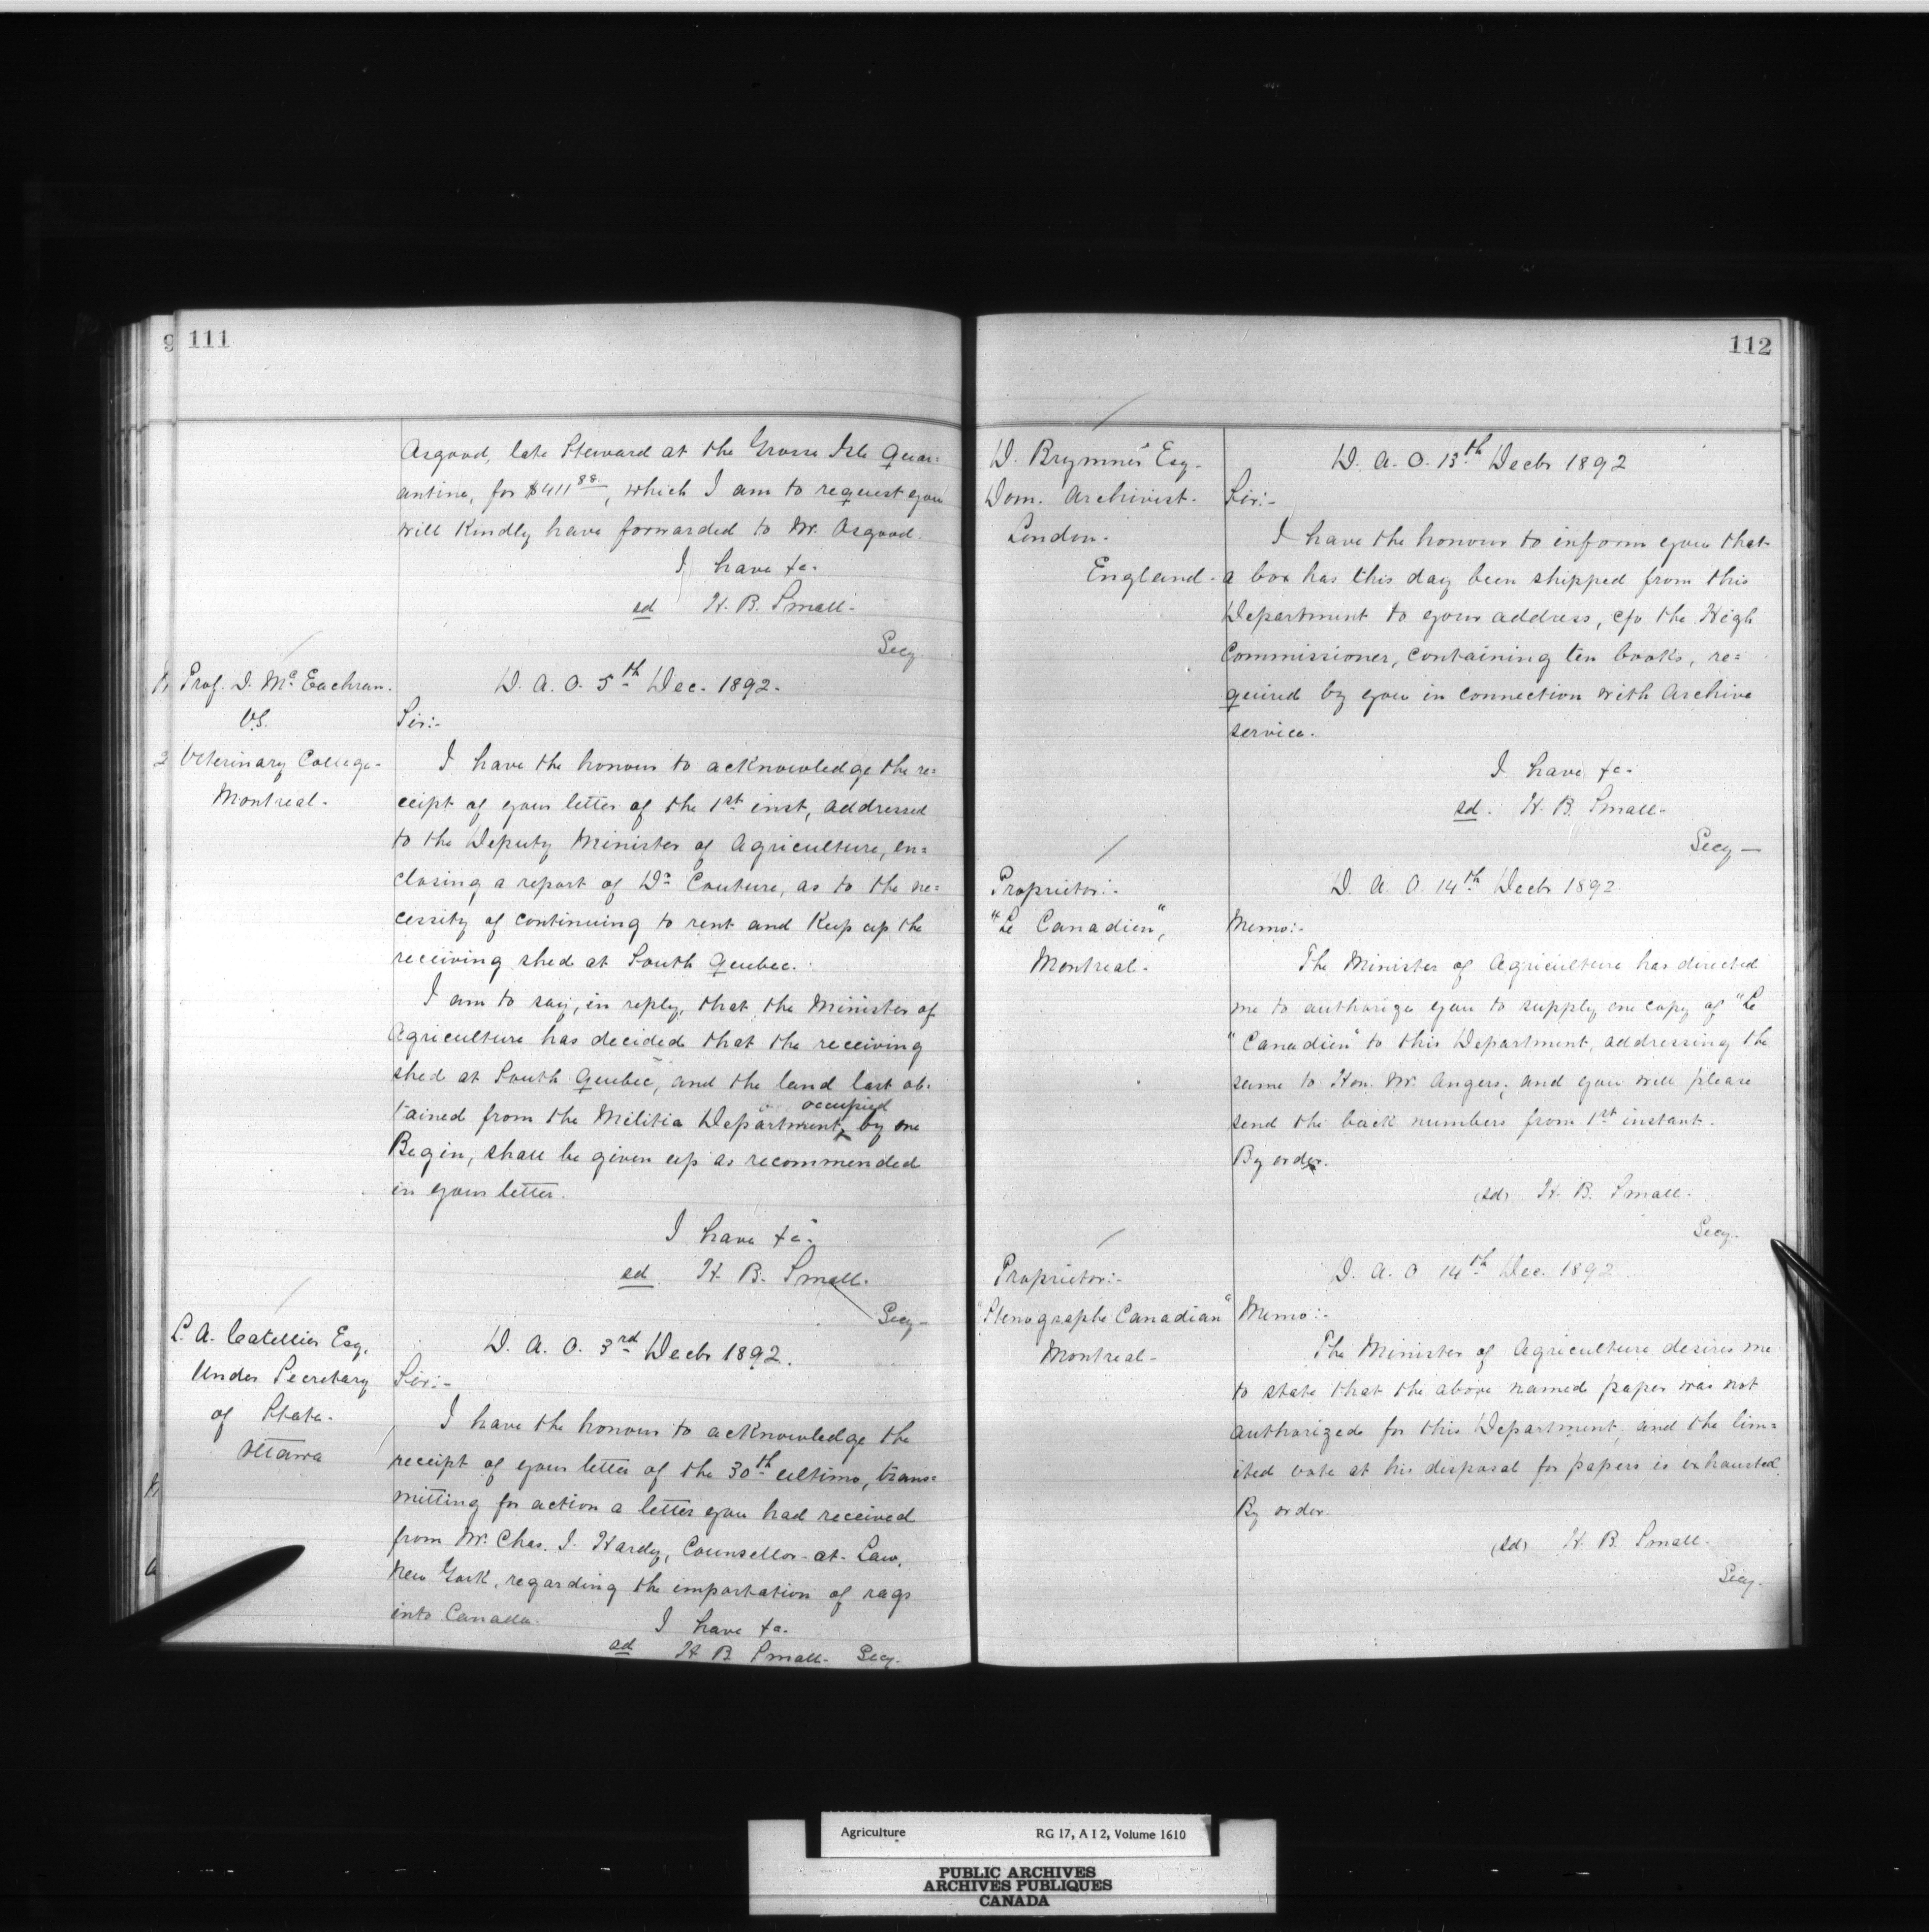 9 111
Osgood, late Steward at the Grosse Isle Quar=
antine, for $411 88, which I am to request you
will Kindly have forwarded to Mr. Osgood.
I have &c.
sd H. B. Small.
Secy
Prof. D. Mc Eachran.
V.S.
Veterinary College-
Montreal.
D. A. O. 5th Dec. 1892.
Sir:-
I have the honour to acknowledge the re=
ceipt of your letter of the 1st inst, addressed
to the Deputy Minister of Agriculture, en=
closing a report of Dr Couture, as to the ne=
cessity of continuing to rent and Keep up the
receiving shed at South Quebec.
I am to say, in reply, that the Minister of
Agriculture has decided that the receiving
shed at South Quebec, and the land last ob-
occupied
tained from the Militia Department, by one
Begin, shall be given up as recommended
in your letter.
I have &c.
sd H. B. Small.
Secy-
L. A. Catellier Esq.
Under Secretary
of State.
Ottawa
D. A. O. 3rd Decbr 1892.
Sir:-
I have the honour to acknowledge the
receipt of your letter of the 30th ultimo, trans=
mitting for action a letter you had received
from Mr. Chas. J. Hardy, Counsellor-at-Law,
New York, regarding the importation of rags
into Canada.
I have &c.
sd H B Small- Secy-
112
D. Brymner Esq-
Dom. Archivist.
London.
England.
D. A. O. 13th Decbr 1892
Sir:-
I have the honour to inform you that
a box has this day been shipped from this
Department to your address, c/o the High
Commissioner, containing ten books, re=
quired by you in connection with Archive
service.
I have &c.
sd. H. B. Small-
Secy-
Proprietor:-
"Le Canadien",
Montreal.
D. A. O. 14th Decbr 1892.
Memo:-
The Minister of Agriculture has directed
me to authorize you to supply one copy of "Le
"Canadien" to this Department, addressing the
same to Hon. Mr. Angers, and you will please
send the back numbers from 1st instant.
By order.
(sd) H. B. Small.
Secy.
Proprietor:-
"Stenographe Canadian"
Montreal-
D. A. O 14th Dec. 1892
Memo:-
The Minister of Agriculture desires me
to state that the above named paper was not
authorized for this Department, and the lim=
ited vote at his disposal for papers is exhausted.
By order.
(sd) H. B. Small.
Secy.
Agriculture RG 17, A I 2, Volume 1610
PUBLIC ARCHIVES
ARCHIVES PUBLIQUES
CANADA